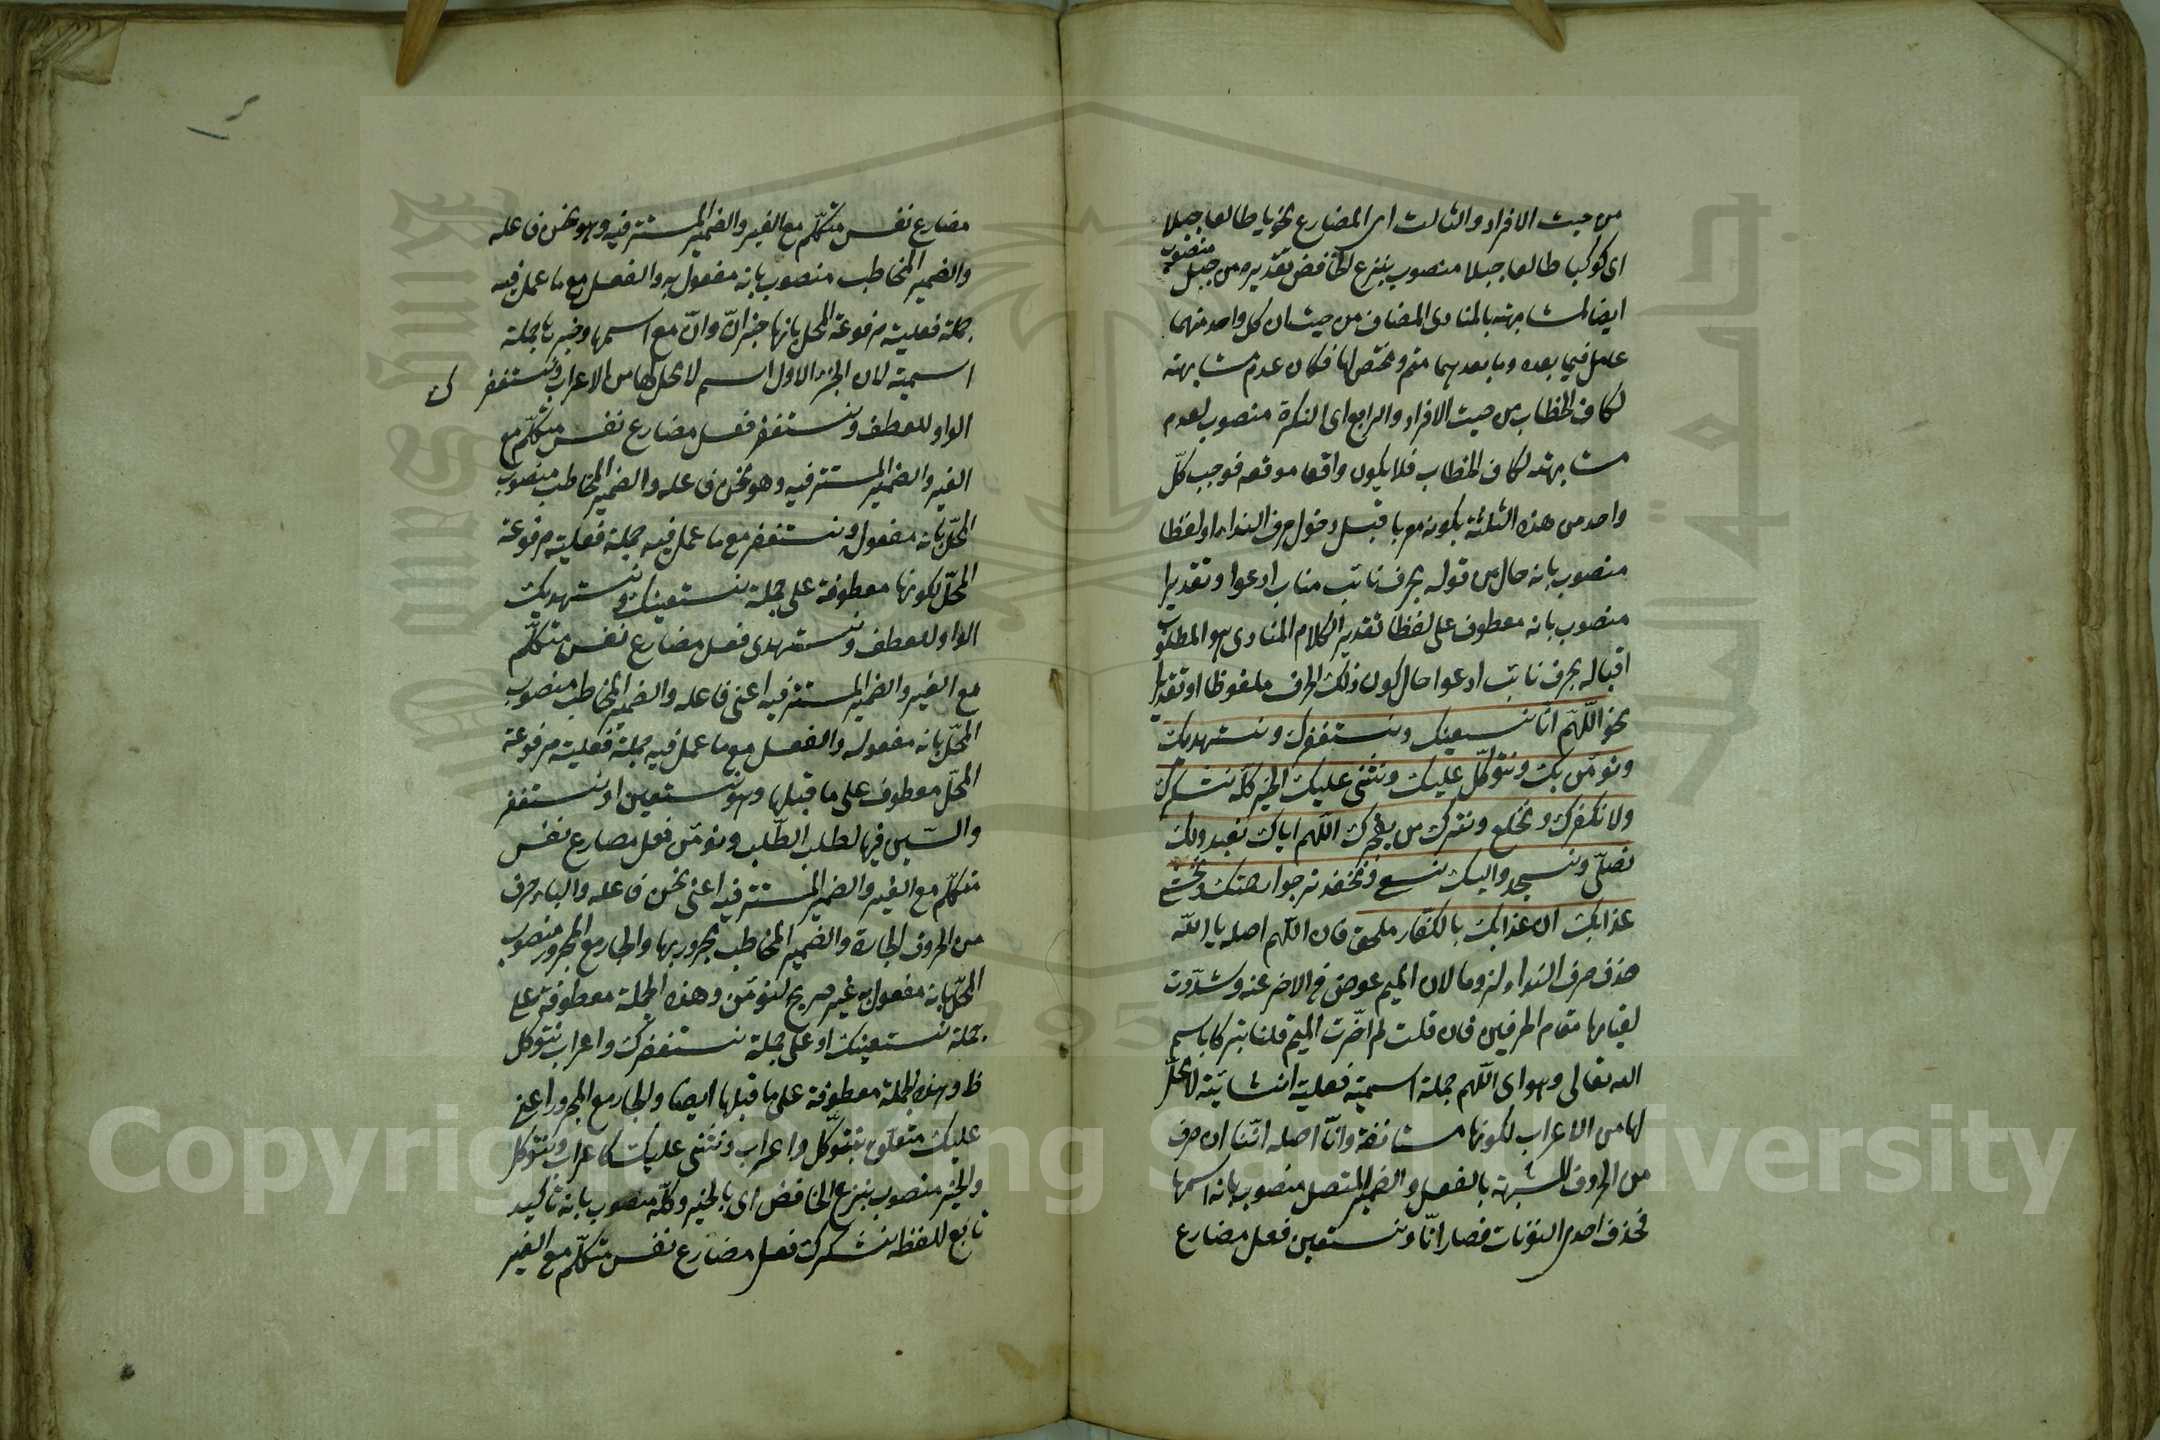 من حيث الافراد والثالث اى المضارع نحو يا طالعا جبلا
اى كوكبا طالعا جبلا منصوب بنزع الخافض تقديره من جبل منصوب
ايضا لمشابهته بالمنادى المضاف من حيث ان كل واحد منهما
عامل فيما بعده وما بعدهما متم ومخصص لها فكان عدم مشابهته
لكاف الخطاب من حيث الافراد والرابع اى النكرة منصوب لعدم
مشابهته لكاف الخطاب فلا يكون واقعا موقعه فوجب كلّ
واحد من هذه الثلثة بكونه معربا قبل دخول حرف النداء لفظا
منصوب بانه حال من قوله بحرف نائب مناب ادعوا وتقديرا
منصوب بانه معطوف على لفظا تقدير الكلام المنادى هو المطلوب
اقباله بحرف نائب ادعوا حال كون ذلك الحرف ملفوظا او تقديرا
نحو اللّهمّ انّا نستعينك ونستغفرك ونستهديك
ونؤمن بك ونتوكّل عليك ونثنى عليك الخير كلّه نشكرك
ولا نكفرك ونخلع ونترك من يفجرك اللّهم اياك نعبد ولك
نصلّى ونسجد واليك نسعى ونحفد نرجوا رحمتك ونخشى
عذابك ان عذابك بالكفّار ملحق فان اللّهم اصله يا اللّه
حذف حرف النداء لزوما لان الميم عوض فى الاخر عنه وشدّدت
لقيامها مقام الحرفين فان قلت لم اخّرت الميم قلنا تبركا باسم
الله تعالى وهو اى اللّهم جملة اسمية فعلية انشائية لا محلّ
لها من الاعراب لكونها مستانفة وانّا اصله انّنا ان حرف
من الحروف المشبهة بالفعل والضمير المتصل منصوب بانه اسمها
فحذف احدى النونات فصار انّا ونستعين فعل مضارع
مضارع نفس متكلّم مع الغير والضمير المستتر فيه وهو نحن فاعله
والضمير المخاطب منصوب بانه مفعول به والفعل مع ما عمل فيه
جملة فعلية مرفوعة المحل بانها خبر انّ وانّ مع اسمها وخبرها جملة
اسمية لان الجزء الاول اسم لا محل لها من الاعراب ونستغفرك
الواو للعطف ونستغفر فعل مضارع نفس متكلّم مع
الغير والضمير المستتر فيه وهو نحن فاعله والضمير المخاطب منصوب
المحلّ بانه مفعول ونستغفر مع ما عمل فيه جملة فعلية مرفوعة
المحلّ لكونها معطوفة على جملة نستعينك ونستهديك
الواو للعطف ونستهدى فعل مضارع نفس متكلّم
مع الغير والضمير المستتر فيه اعنى فاعله والضمير المخاطب منصوب
المحلّ بانه مفعوله والفعل مع ما عمل فيه جملة فعلية مرفوعة
المحلّ معطوف على ما قبلها وهو نستعين او نستغفر
والسّين فيها لطلب الطّلب ونؤمن فعل مضارع نفس
متكلّم مع الغير والضمير المستتر فيه اعنى نحن فاعله والباء حرف
من الحروف الجارة والضمير المخاطب مجرور بها والجار مع المجرور منصوب
المحلّ بانه مفعول به غير صريح لنؤمن وهذه الجملة معطوفة على
جملة نستعينك او على جملة نستغفرك واعراب نتوكل
ظ وهذه الجملة معطوفة على ما قبلها ايضا والجار مع المجرور اعنى
عليك متعلّق بنتوكّل واعراب ونثنى عليك كاعراب ونتوكل
والخير منصوب بنزع الخافض اى بالخير وكلّه منصوب بانه تاكيد
تابع للفظه نشكرك فعل مضارع نفس متكلّم مع الغير